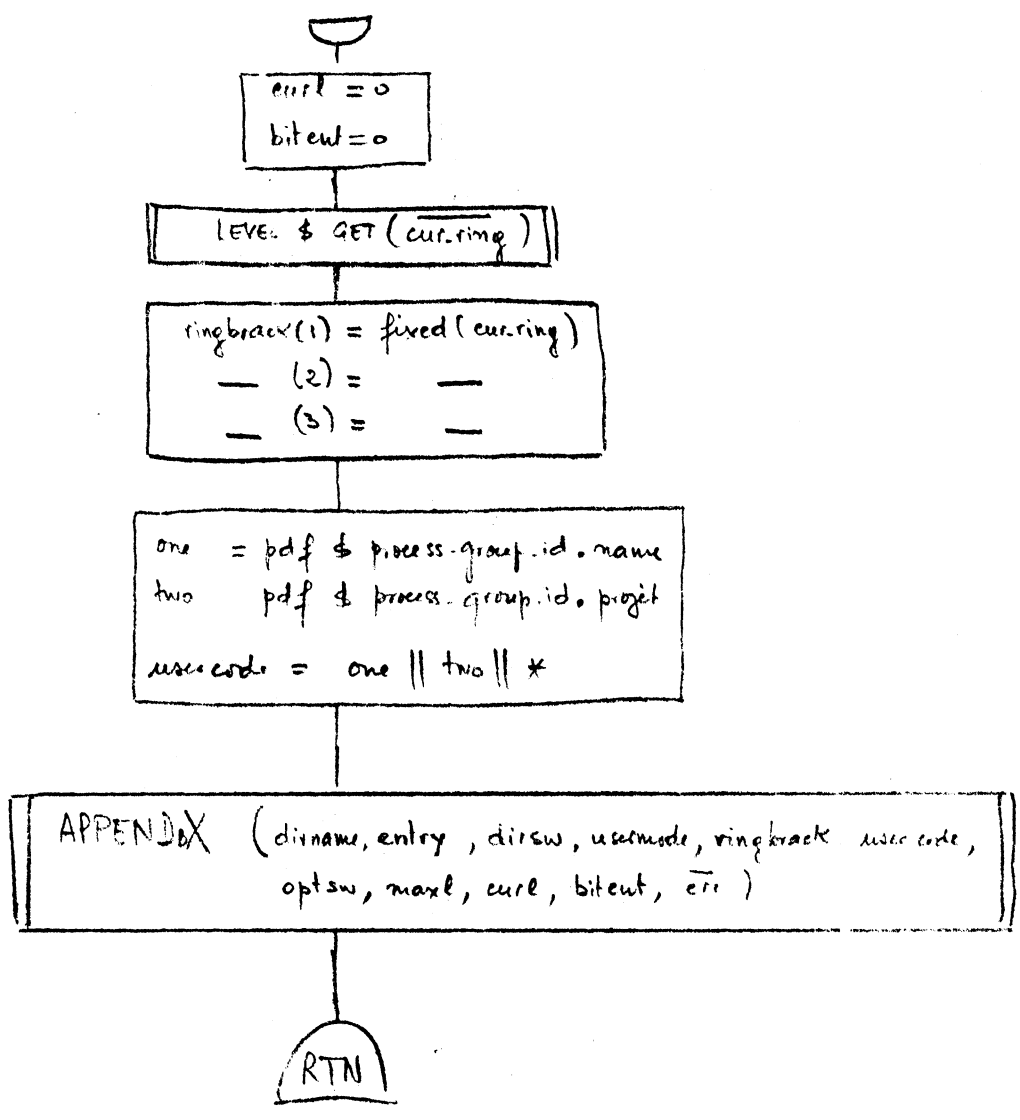 curl = 0
bitcnt = 0
LEVEL $ GET (cur-ring)
ringbrack (1) = fixed (cur-ring)
— (2) = —
— (3) = —
one = pdf $ process-group-id . name
two pdf $ process-group-id . projet
usercode = one || two || *
APPENDX (dirname, entry, dirsw, usermode, ringbrack usercode,
optsw, maxl, curl, bitcnt, err)
RTN